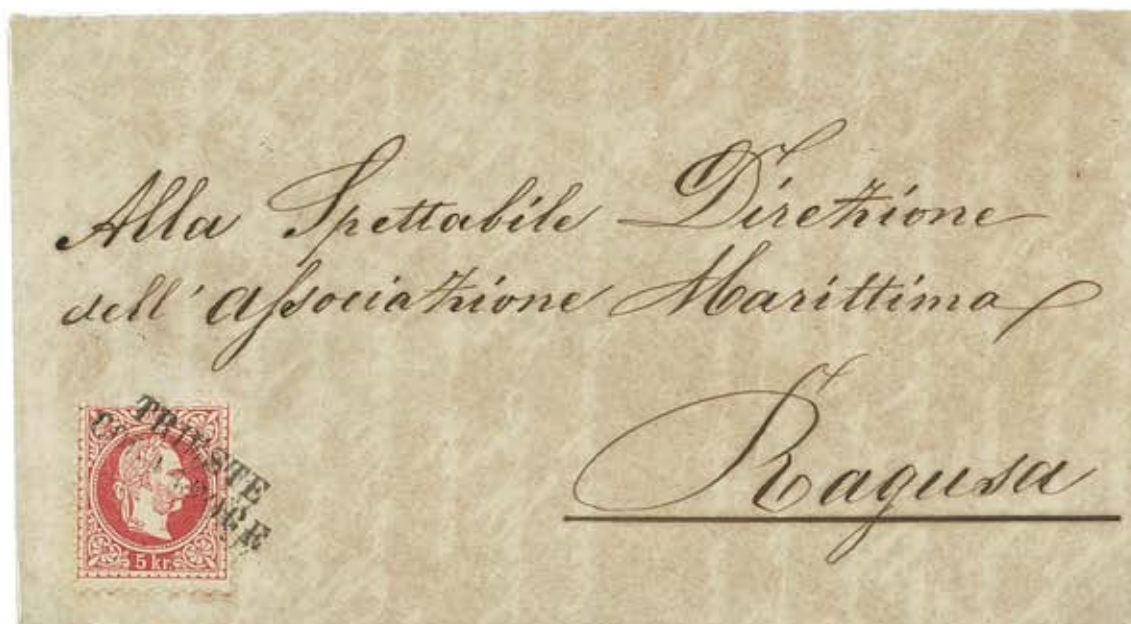 Alla Spettabile Direzione
dell' Associazione Marittima
Ragusa
TRIESTE
5 kr.